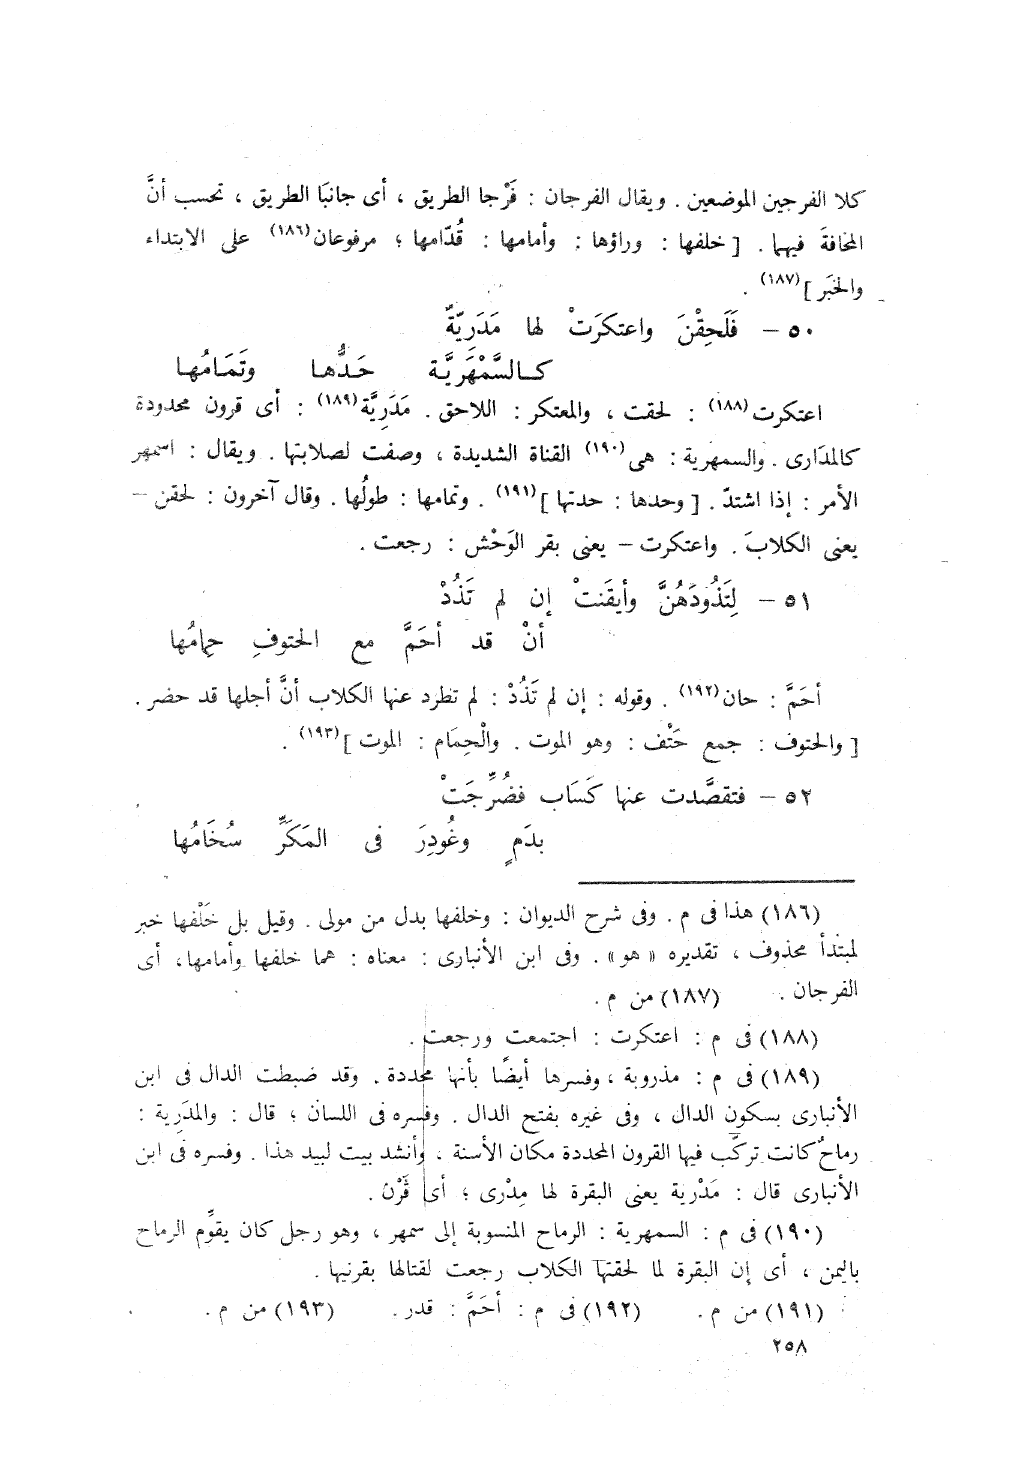 كلا الفرجين الموضعين . ويقال الفرجان : فَرْجا الطريق ، أى جانبَا الطريق ، تحسب أنَّ
المخافةَ فيهما . [ خلفها : وراؤها : وأمامها : قُدّامها ؛ مرفوعان(١٨٦) على الابتداء
والخبَر ](١٨٧) .
٥٠ – فَلَحِقْنَ واعتكرَتْ لها مَدَرِيّةٌ
كـالسَّمْهَرِيَّـة حَـدُّهـا وتَمَـامُهـا
اعتكرت(١٨٨) : لحقت ، والمعتكر : اللاحق . مَدَرِيَّة(١٨٩) : أى قرون محدودة
كالمدَارى . والسمهرية : هى(١٩٠) القناة الشديدة ، وصفت لصلابتها . ويقال : اسمهر
الأمر : إذا اشتدّ . [ وحدها : حدتها ](١٩١) . وتمامها : طولُها . وقال آخرون : لحقن –
يعنى الكلابَ . واعتكرت – يعنى بقر الوَحْش : رجعت .
٥١ – لِتَذُودَهُنَّ وأيقَنتْ إن لم تَذُدْ
أنْ قد أحَمَّ مع الحتوفِ حِمامُها
أحَمَّ : حان(١٩٢) . وقوله : إن لم تَذُدْ : لم تطرد عنها الكلاب أنَّ أجلها قد حضر .
[ والحتوف : جمع حَتْف : وهو الموت . والْحِمَام : الموت ](١٩٣) .
٥٢ – فتقصَّدت عنها كَسَاب فضُرِّجَتْ
بدَمٍ وغُودِرَ فى المَكَرِّ سُخَامُها
(١٨٦) هذا فى م . وفى شرح الديوان : وخلفها بدل من مولى . وقيل بل خَلْفها خبر
لمبتدأ محذوف ، تقديره « هو » . وفى ابن الأنبارى : معناه : هما خلفها وأمامها، أى
الفرجان . (١٨٧) من م .
(١٨٨) فى م : اعتكرت : اجتمعت ورجعت .
(١٨٩) فى م : مذروبة ، وفسرها أيضًا بأنها محددة . وقد ضبطت الدال فى ابن
الأنبارى بسكون الدال ، وفى غيره بفتح الدال . وفسره فى اللسان ؛ قال : والمدَرية :
رماحٌ كانت تركَّب فيها القرون المحددة مكان الأسنة ، وأنشد بيت لبيد هذا . وفسره فى ابن
الأنبارى قال : مَدْرية يعنى البقرة لها مِدْرى ؛ أى قَرْن .
(١٩٠) فى م : السمهرية : الرماح المنسوبة إلى سمهر ، وهو رجل كان يقوِّم الرماح
باليمن ، أى إن البقرة لما لحقتها الكلاب رجعت لقتالها بقرنيها .
(١٩١) من م . (١٩٢) فى م : أحَمَّ : قدر . (١٩٣) من م .
٢٥٨